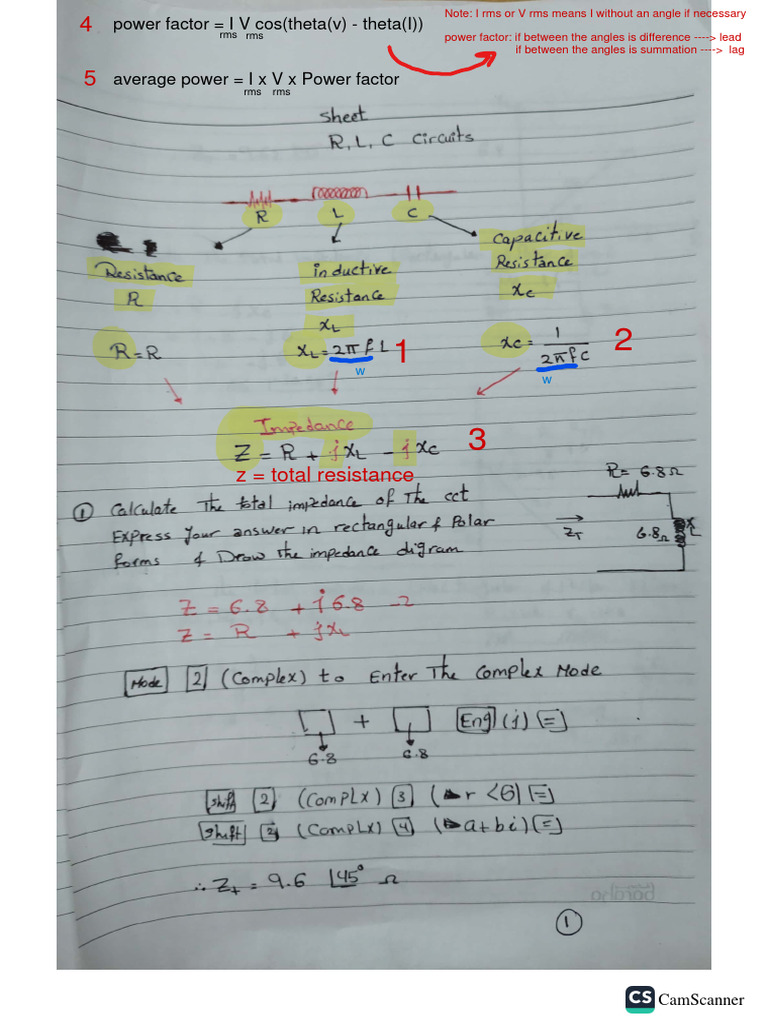 4 power factor = I V cos(theta(v) - theta(I))
rms rms
Note: I rms or V rms means I without an angle if necessary
power factor: if between the angles is difference ----> lead
if between the angles is summation ----> lag
5 average power = I x V x Power factor
rms rms
Sheet
R, L, C Circuits
R L C
Resistance
R
inductive
Resistance
XL
Capacitive
Resistance
Xc
R = R
XL = 2π f L 1
w
Xc = 1 / 2π f C 2
w
Impedance
Z = R + jXL - jXc 3
z = total resistance
① Calculate The total impedance of The cct
Express Your answer in rectangular & Polar
forms & Draw the impedance digram
R = 6.8 Ω
ZT
6.8 Ω XL
Z = 6.8 + j 6.8 Ω
Z = R + jXL
Mode 2 (Complex) to Enter The Complex Mode
+ Eng (j) =
6.8 6.8
Shift 2 (Complx) 3 (▶r <θ) =
Shift 2 (Complx) 4 (▶a+bi) =
∴ ZT = 9.6 ∠45° Ω
①
CS CamScanner